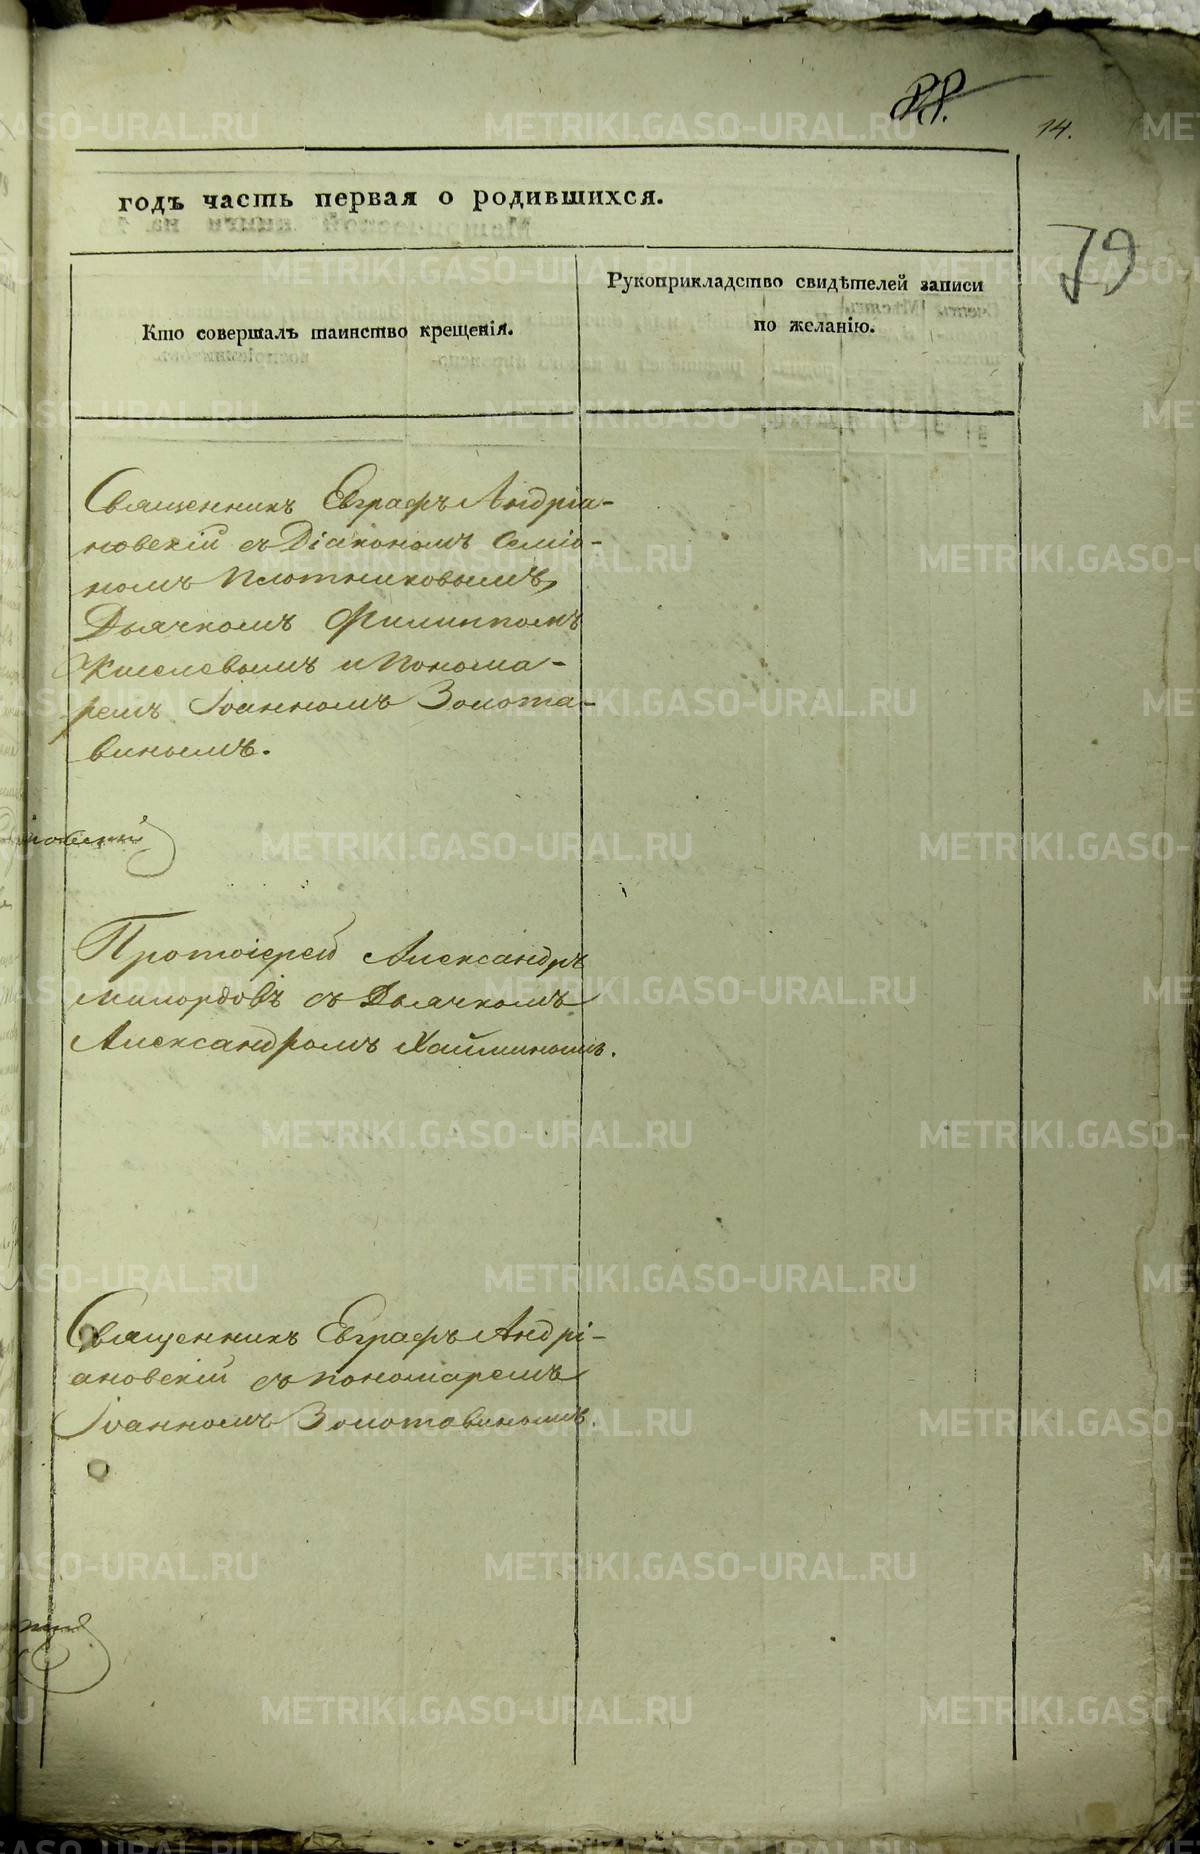 14.
годъ часть первая о родившихся.
79
Кто совершалъ таинство крещенія.
Рукоприкладство свидѣтелей записи
по желанію.
Священникъ Евграфъ Андріа-
новскій съ Діакономъ Семіо-
номъ Плотниковымъ,
Дьячкомъ Филиппомъ
Киселевымъ и Понома-
ремъ Іоанномъ Золота-
винымъ.
Протоіерей Александръ
Милордовъ съ Дьячкомъ
Александромъ Хайминымъ.
Священникъ Евграфъ Андрі-
ановскій съ пономаремъ
Іоанномъ Золотавинымъ.
METRIKI.GASO-URAL.RU